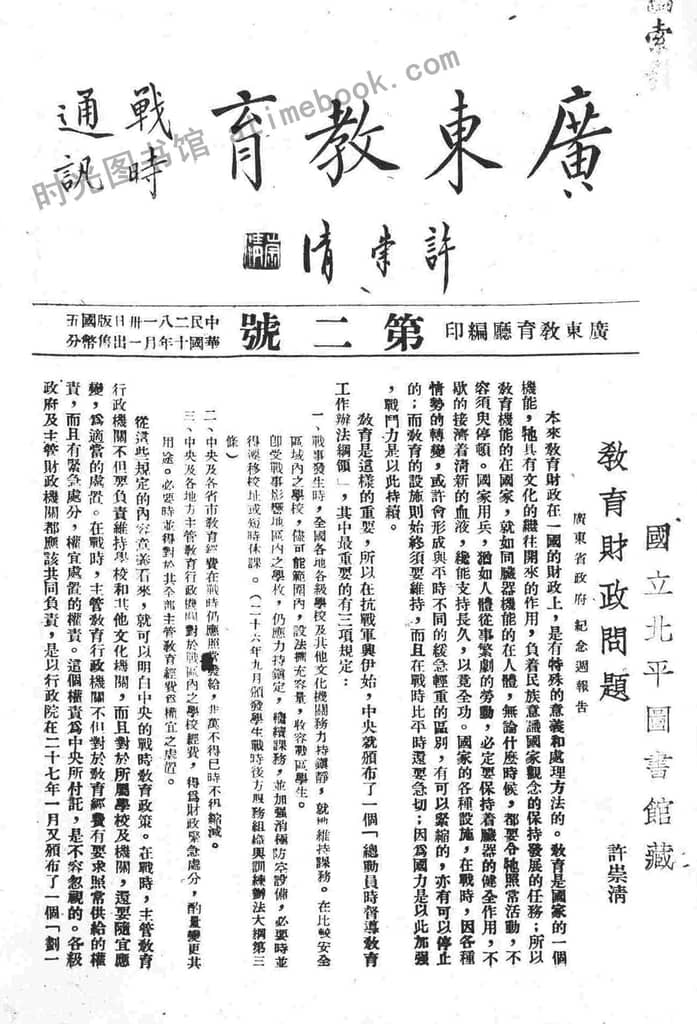 廣東教育
戰時
通訊
許崇清
時光图书馆 atimebook.com
廣東教育廳編印
第二號
中華民國二十八年一月卅一日出版
國幣五分
國立北平圖書館藏
教育財政問題
廣東省政府紀念週報告
許崇清
本來教育財政在一國的財政上，是有特殊的意義和處理方法的。教育是國家的一個
機能，牠具有文化的繼往開來的作用，負着民族意識國家觀念的保持發展的任務；所以
教育機能的在國家，就如同臟器機能的在人體，無論什麼時候，都要令牠照常活動，不
容須臾停頓。國家用兵，猶如人體從事繁劇的勞動，必定要保持着臟器的健全作用，不
歇的接濟着清新的血液，纔能支持長久，以竟全功。國家的各種設施，在戰時，因各種
情勢的轉變，或許會形成與平時不同的緩急輕重的區別，有可以緊縮的，亦有可以停止
的；而教育的設施則始終須要維持，而且在戰時比平時還要急切；因爲國力是以此加强
，戰鬥力是以此持續。
教育是這樣的重要，所以在抗戰軍興伊始，中央就頒布了一個「總動員時督導教育
工作辦法綱領」，其中最重要的有三項規定：
一、戰事發生時，全國各地各級學校及其他文化機關務力持鎮靜，就地維持課務。在比較安全
區域內之學校，儘可能範圍內，設法擴充容量，收容戰區學生。
卽受戰事影響地區內之學校，仍應力持鎮定，繼續課務，並加强消極防空設備，必要時並
得遷移校址或短時休課。（二十六年九月頒發學生戰時後方服務組織與訓練辦法大綱第三
條）
二、中央及各省市教育經費在戰時仍應照常發給，非萬不得已時不得縮減。
三、中央及各地方主管教育行政機關對於戰區內之學校經費，得爲財政緊急處分，酌量變更其
用途。必要時並得對於其全部主管教育經費爲權宜之處置。
從這些規定的內容意義看來，就可以明白中央的戰時教育政策。在戰時，主管教育
行政機關不但要負責維持學校和其他文化機關，而且對於所屬學校及機關，還要隨宜應
變，爲適當的處置。在戰時，主管教育行政機關不但對於教育經費有要求照常供給的權
責，而且有緊急處分，權宜處置的權責。這個權責爲中央所付託，是不容忽視的。各級
政府及主管財政機關都應該共同負責，是以行政院在二十七年一月又頒布了一個「劃一